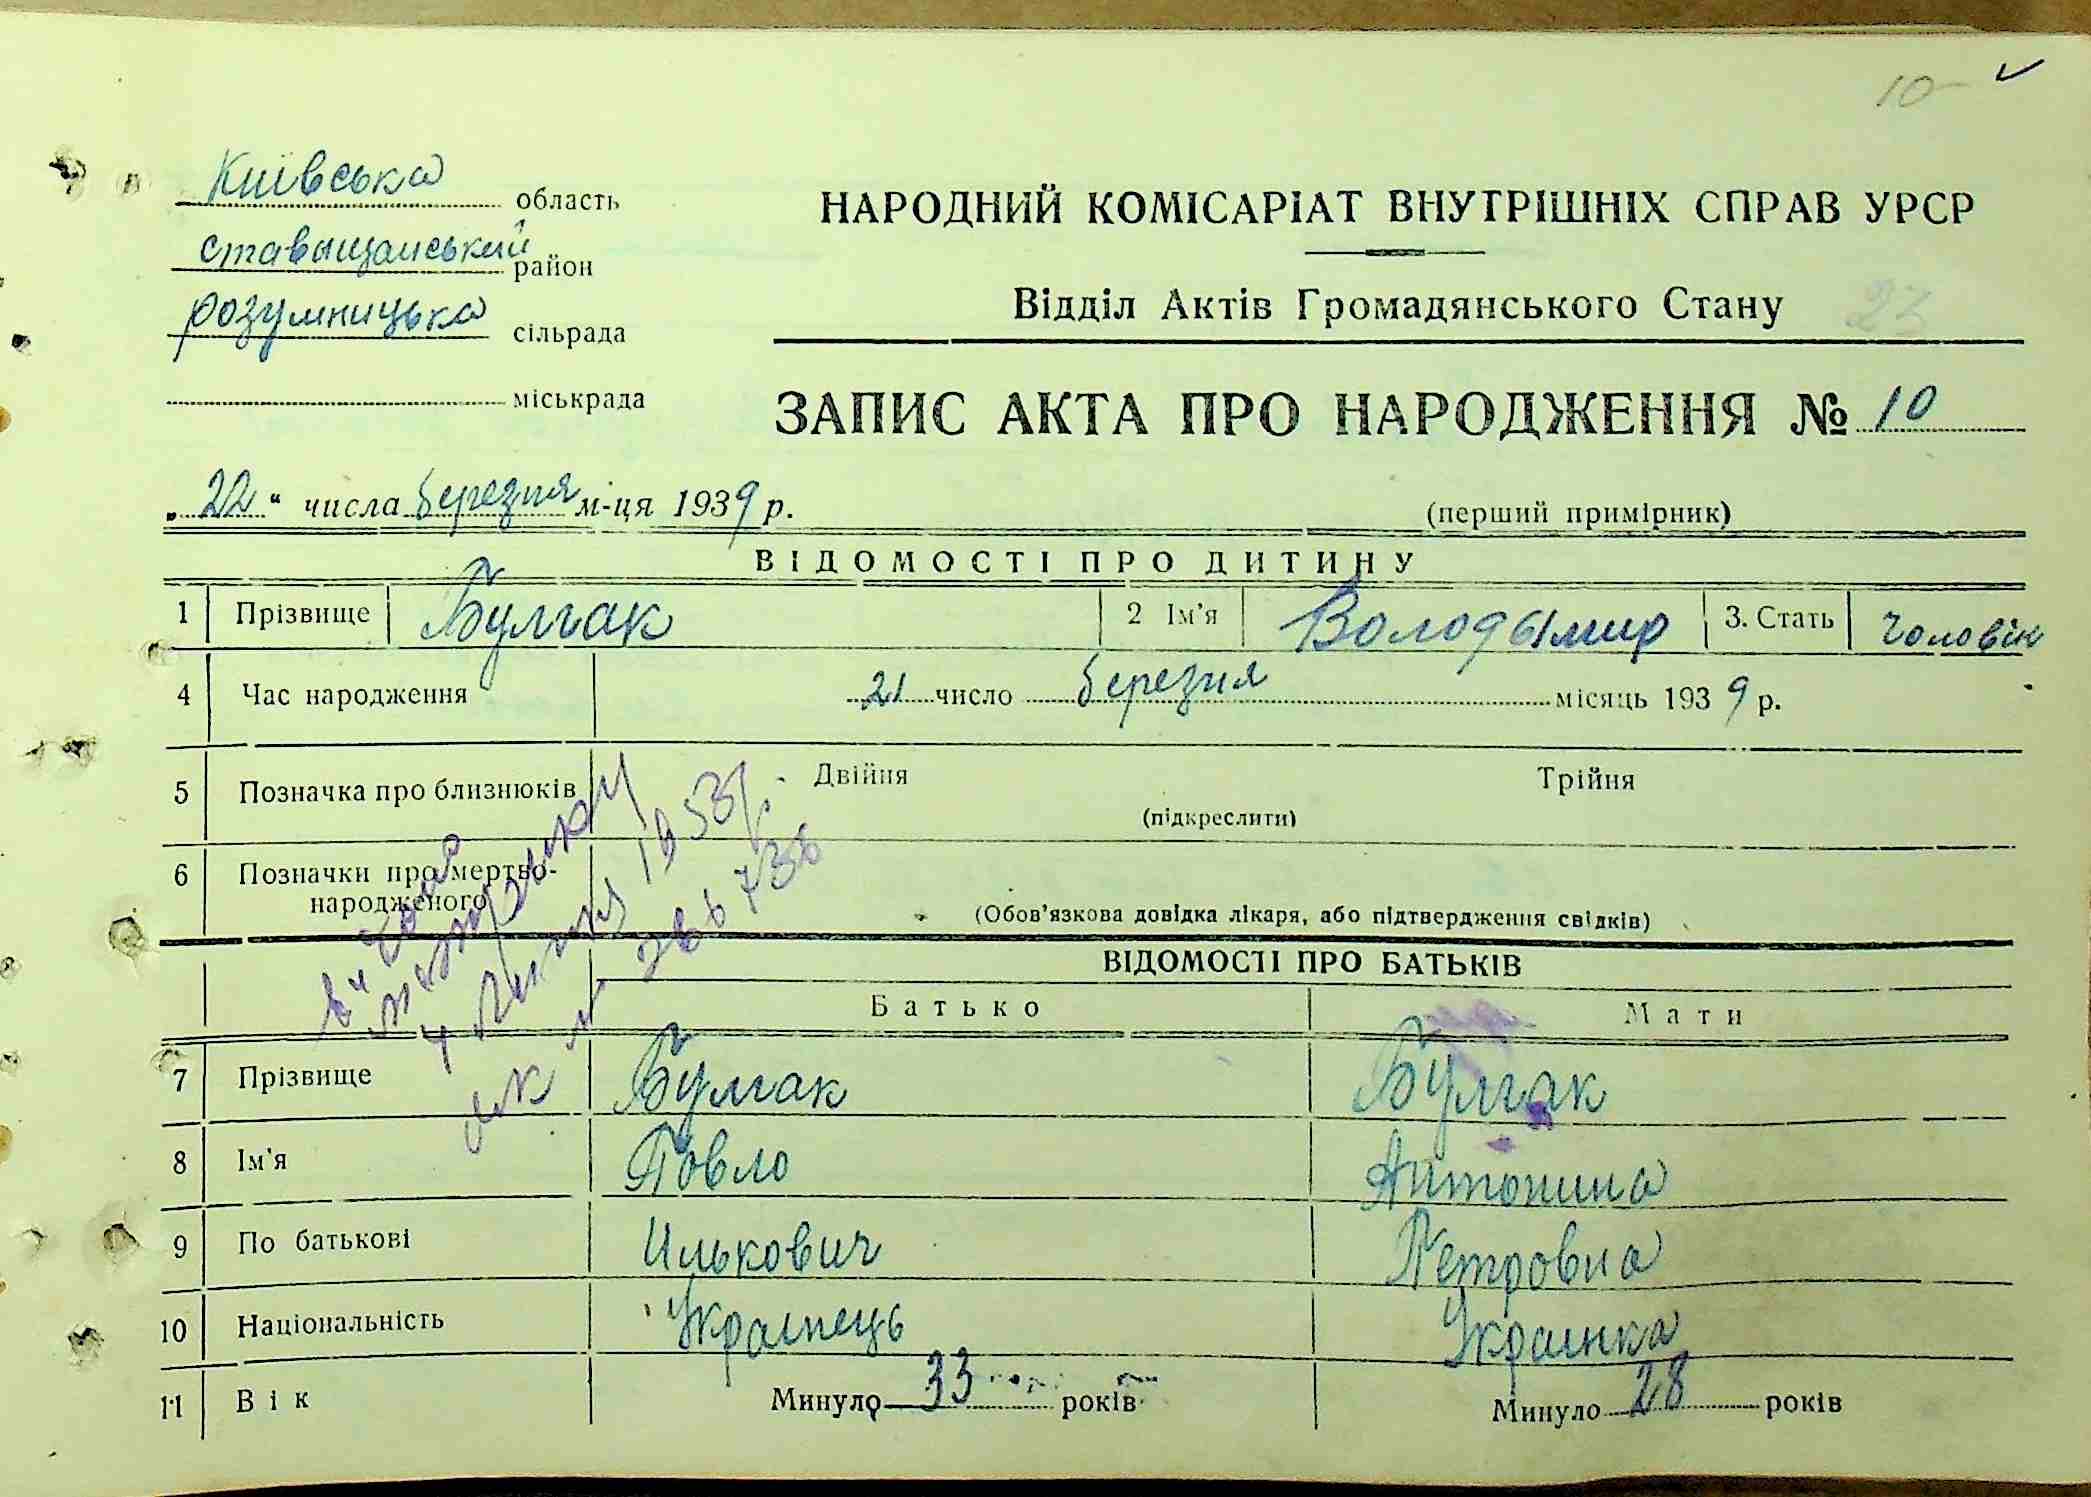 10
Київська область
Ставыщанський район
Розумницька сільрада
міськрада
НАРОДНИЙ КОМІСАРІАТ ВНУТРІШНІХ СПРАВ УРСР
Відділ Актів Громадянського Стану
23
ЗАПИС АКТА ПРО НАРОДЖЕННЯ № 10
„22“ числа березня м-ця 1939 р.
(перший примірник)
ВІДОМОСТІ ПРО ДИТИНУ
1 Прізвище Булгак 2 Ім'я Володымир 3. Стать чоловік
4 Час народження 21 число березня місяць 1939 р.
5 Позначка про близнюків Двійня Трійня
(підкреслити)
6 Позначки про мертво-
народженого
(Обов'язкова довідка лікаря, або підтвердження свідків)
4 липня 1953р.
ВІДОМОСТІ ПРО БАТЬКІВ
Батько Мати
7 Прізвище Булгак Булгак
8 Ім'я Повло Антонина
9 По батькові Илькович Петровна
10 Національність Украінець Украінка
11 Вік Минуло 33 років Минуло 28 років